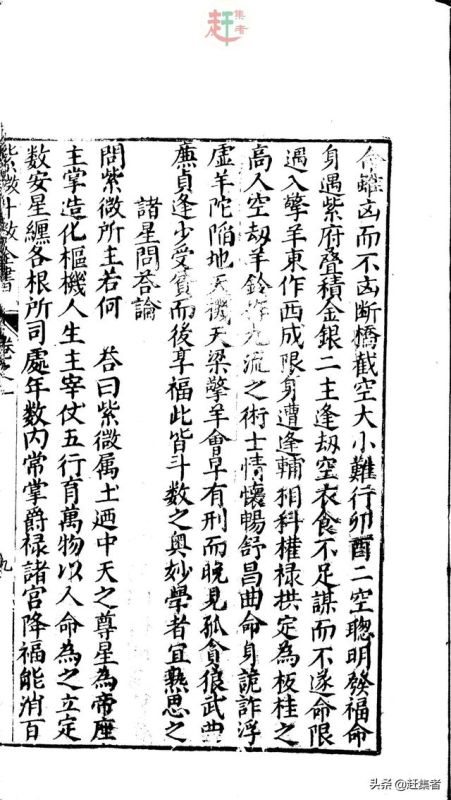 赶集者
合雖凶而不凶断橋截空大小難行卯酉二空聰明發福命
身遇紫府叠積金銀二主逢劫空衣食不足謀而不遂命限
遇入擎羊東作西成限身遭逢輔相科權禄拱定為板桂之
高人空劫羊鈴作九流之術士情懷暢舒昌曲命身詭詐浮
虛羊陀陷地天機天梁擎羊會早有刑而晚見孤貪狼武曲
廉貞逢少受貧而後享福此皆斗数之奥妙學者宜熟思之
諸星問荅論
問紫微所主若何 荅曰紫微属土廼中天之尊星為帝座
主掌造化樞機人生主宰仗五行育萬物以人命為之立定
数安星纏各根所司處年数内常掌爵禄諸宮降福能消百
紫微斗数全書 卷之一 九
头条 @赶集者